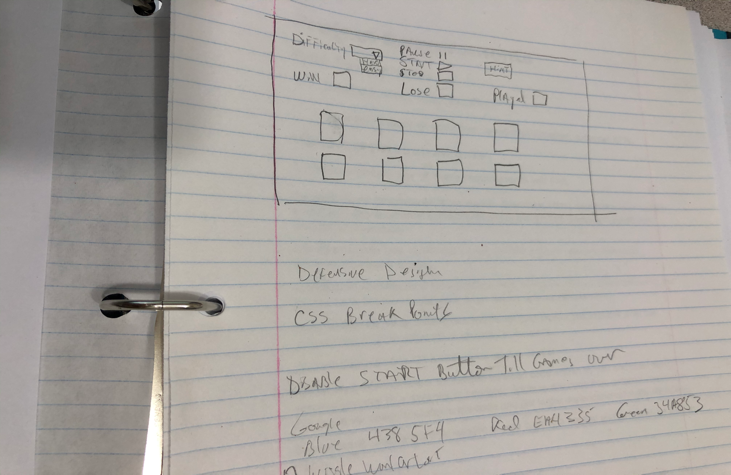 Difficulty
Hard
Easy
PAUSE II
START
STOP
Hint
WIN
Lose
Played
Defensive Design
CSS Break Points
Disable START Button Till Games over
Google
Blue 4385F4 Red EA4335 Green 34A853